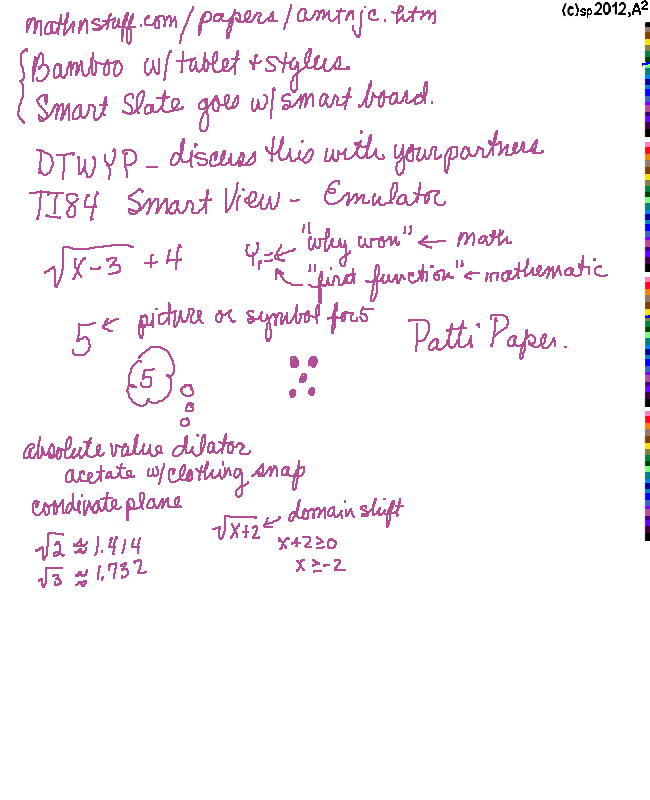 (c)sp2012,A²
mathnstuff.com/papers/amtnjc.htm
Bamboo w/tablet + stylus
Smart Slate goes w/smart board.
DTWYP - discuss this with your partners
TI84 Smart View - Emulator
√x-3 + 4
Y₁= ← "why won" ← math
"first function" ← mathematic
5 ← picture or symbol for 5
Patti Paper.
5
absolute value dilator
acetate w/clothing snap
coordinate plane
√x+2 ← domain shift
x+2≥0
x≥-2
√2 ≈ 1.414
√3 ≈ 1.732